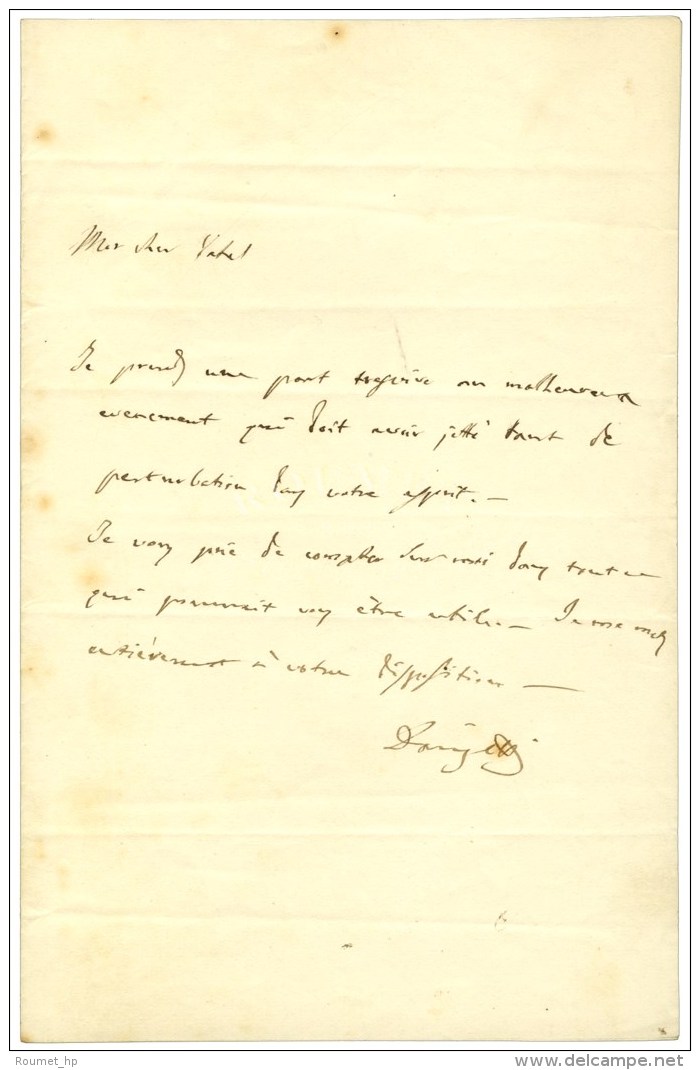 Mon cher Vatel
Je prends une part très vive au malheureux
evenement qui doit avoir jetté tant de
perturbation dans votre esprit. —
Je vous prie de compter sur moi dans tout ce
qui pourrait vous être utile. — Je me mets
entièrement à votre disposition —
Donizetti
Roumet_hp
delcampe.net